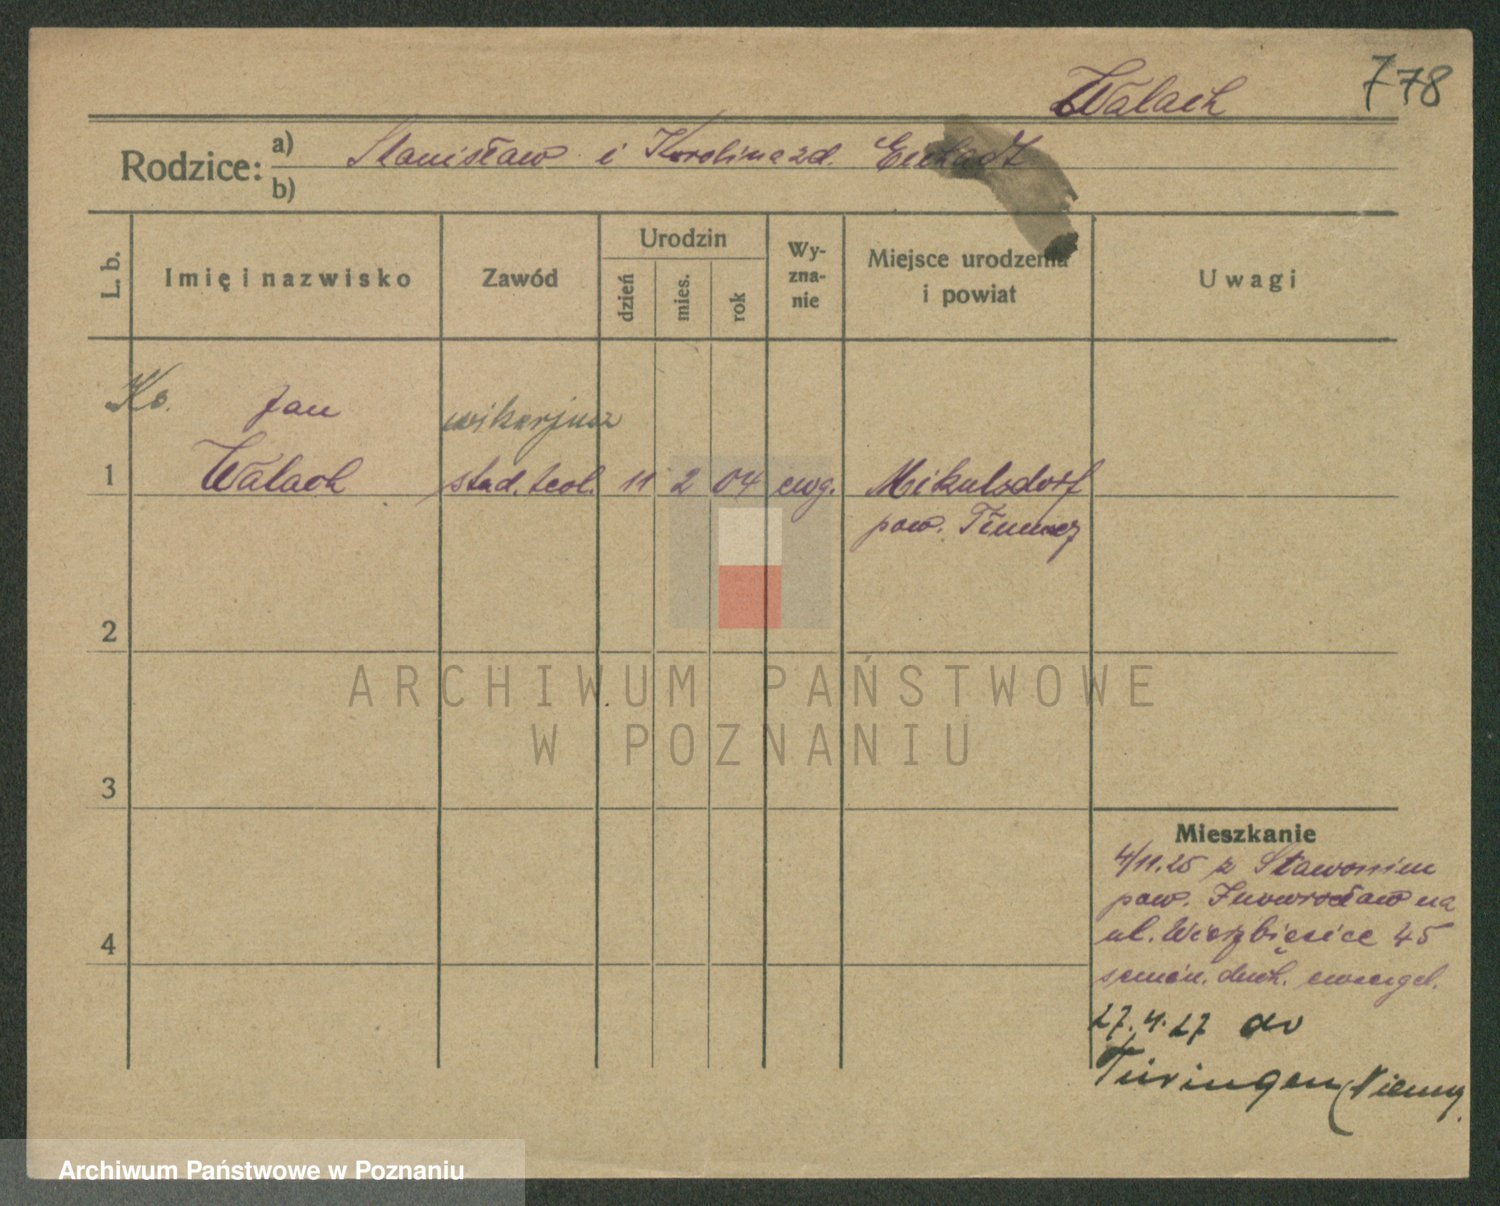 Walach
778
Rodzice: a) Stanisław i Karolina zd.
b)
L. b.
Imię i nazwisko
Zawód
Urodzin
dzień
mies.
rok
Wy-
zna-
nie
Miejsce urodzenia
i powiat
Uwagi
Ks. Jan wikarjusz
1 Walach stud. teol. 11 2 04 ewg. Mikulsdorf
pow. Tłumacz
2
3
4
Mieszkanie
4/11.25 z
pow. Inowrocław na
ul. Wierzbięcice 45
semin. duch. ewangel.
27.4.27 do
Turingen (Niemcy
ARCHIWUM PAŃSTWOWE
W POZNANIU
Archiwum Państwowe w Poznaniu